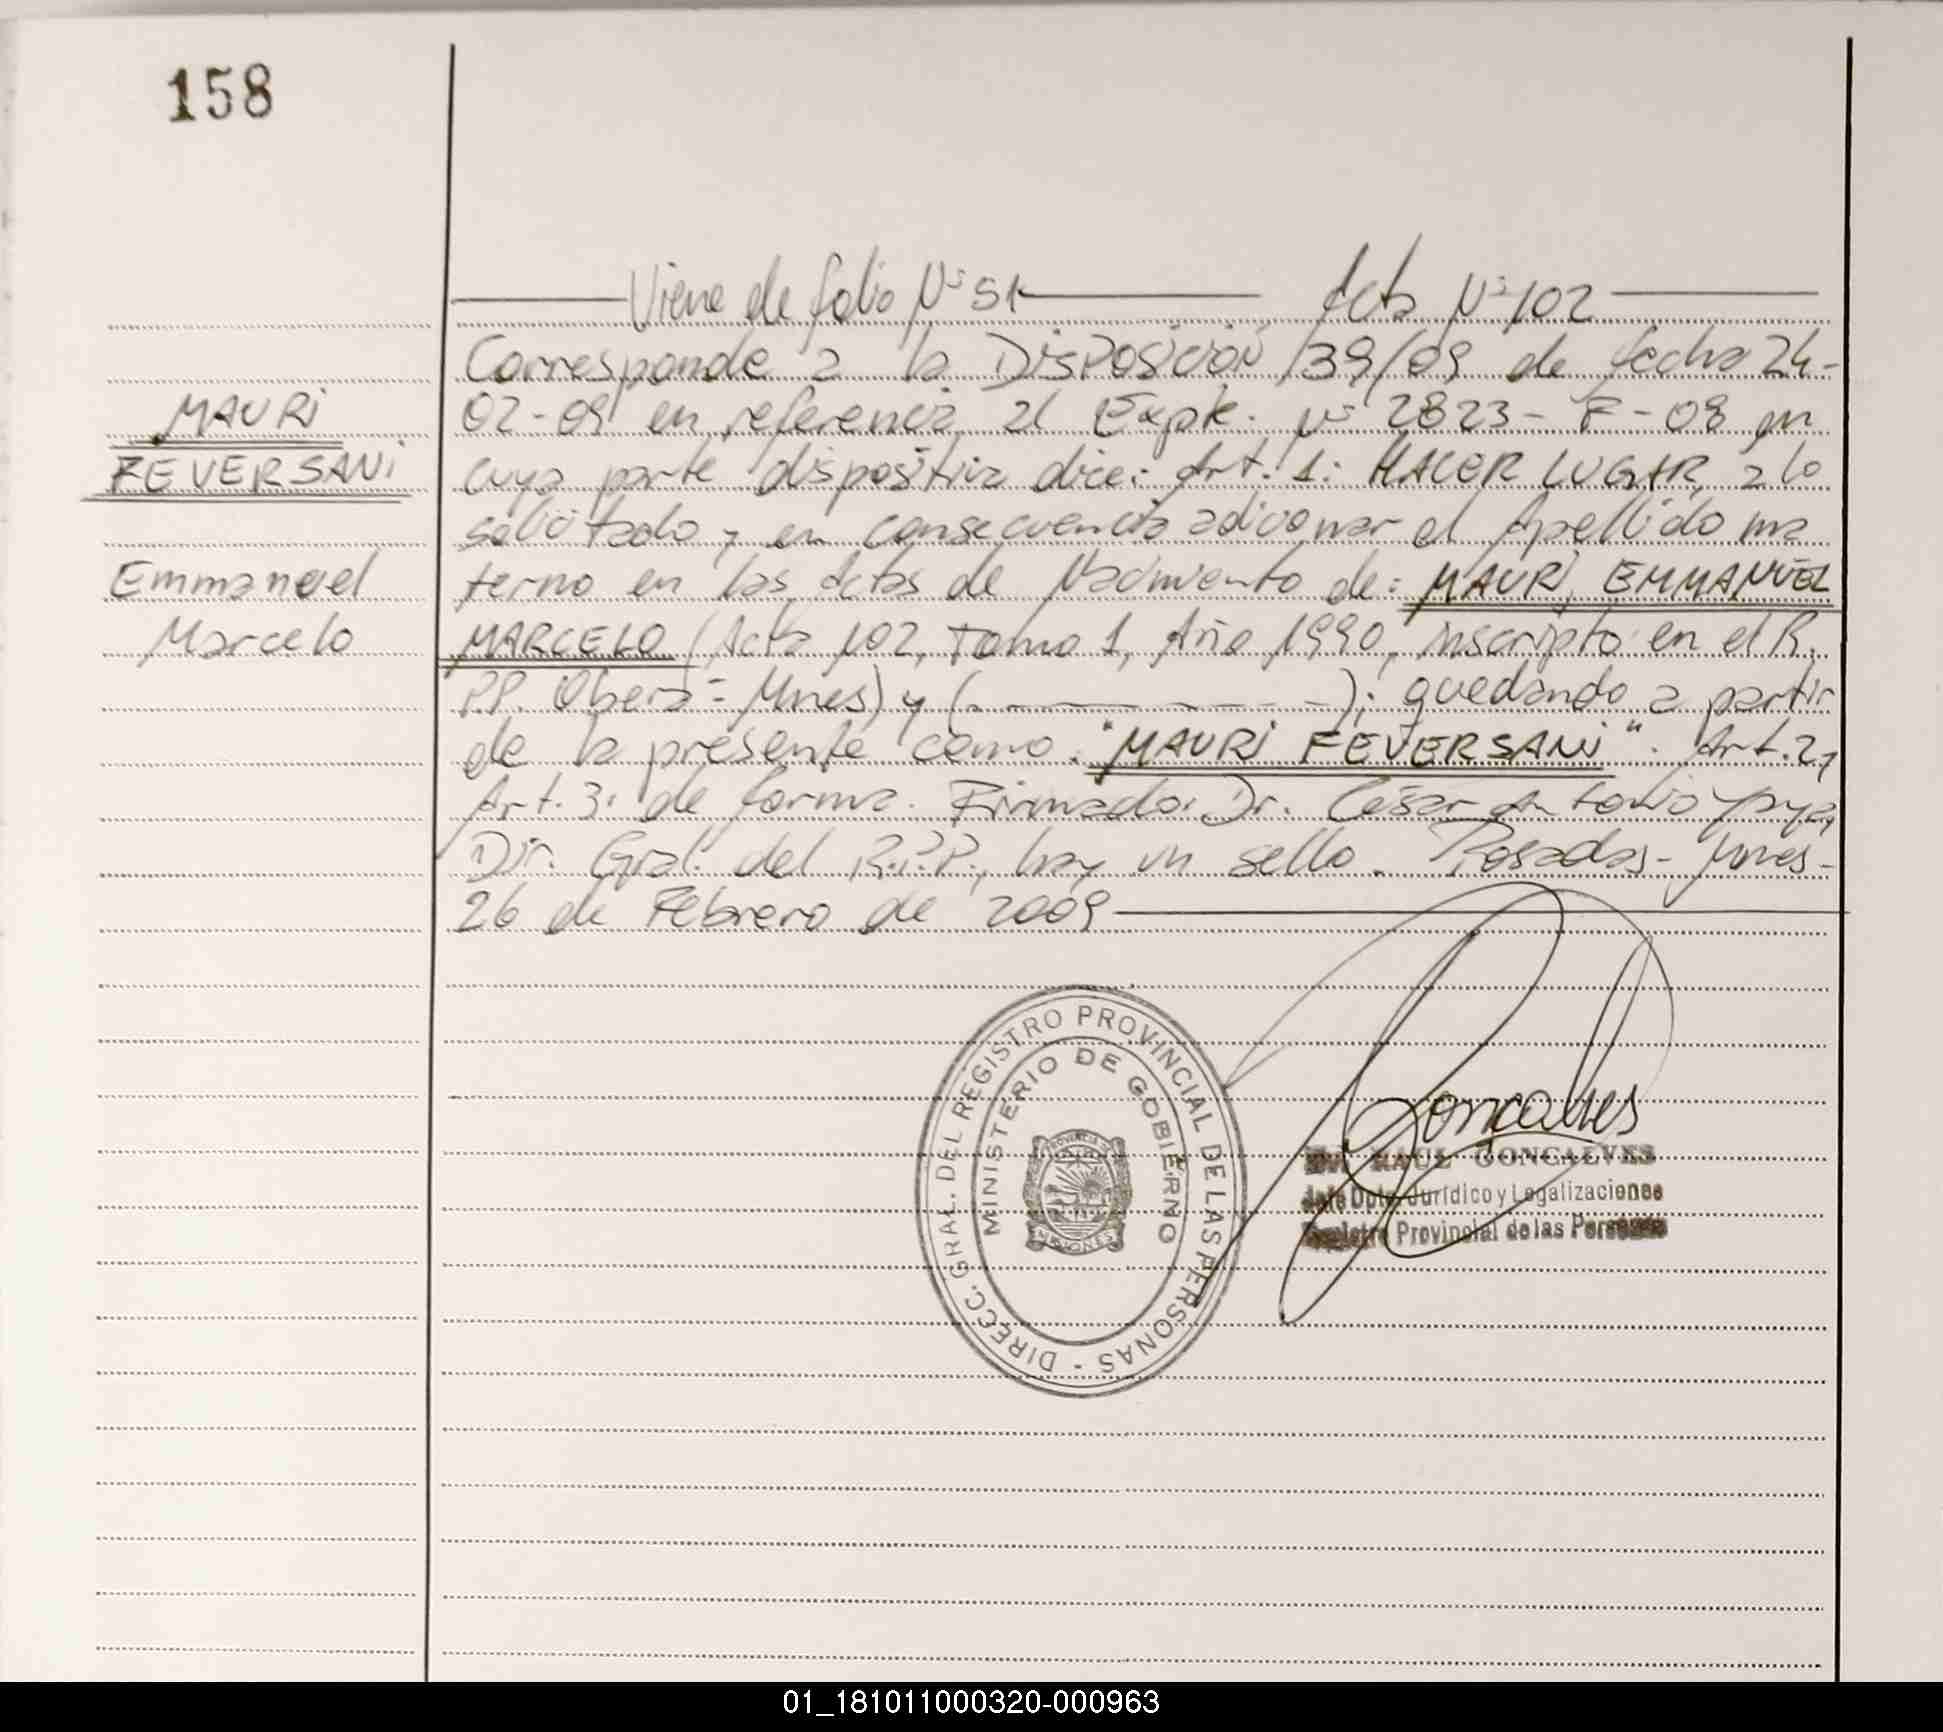 158
Viene de folio Nº 51 Acta Nº 102
Corresponde a la Disposición 139/09 de fecha 24-
02-09 en referencia al Expte. nº 2823-F-08 en
cuya parte dispositiva dice: Art. 1: HACER LUGAR, a lo
solicitado y en consecuencia adicionar el Apellido ma
terno en las Actas de Nacimiento de: MAURI, EMMANUEL
MARCELO (Acta 102, Tomo 1, Año 1990, inscripto en el R.
P.P. Oberá = Mnes) y ( - - - - - - ); quedando a partir
de la presente como: "MAURI FEVERSANI". Art. 2,
Art. 3: de forma. Firmado: Dr. César Antonio
Dir. Gral. del R.P.P., hay un sello. Posadas - Mnes -
26 de Febrero de 2009
MAURI
FEVERSANI
Emmanuel
Marcelo
DIRECC. GRAL. DEL REGISTRO PROVINCIAL DE LAS PERSONAS -
MINISTERIO DE GOBIERNO
PROVINCIA DE
MISIONES
Goncalves
RAUL GONCALVES
Jefe Dpto. Jurídico y Legalizaciones
Registro Provincial de las Personas
01_181011000320-000963